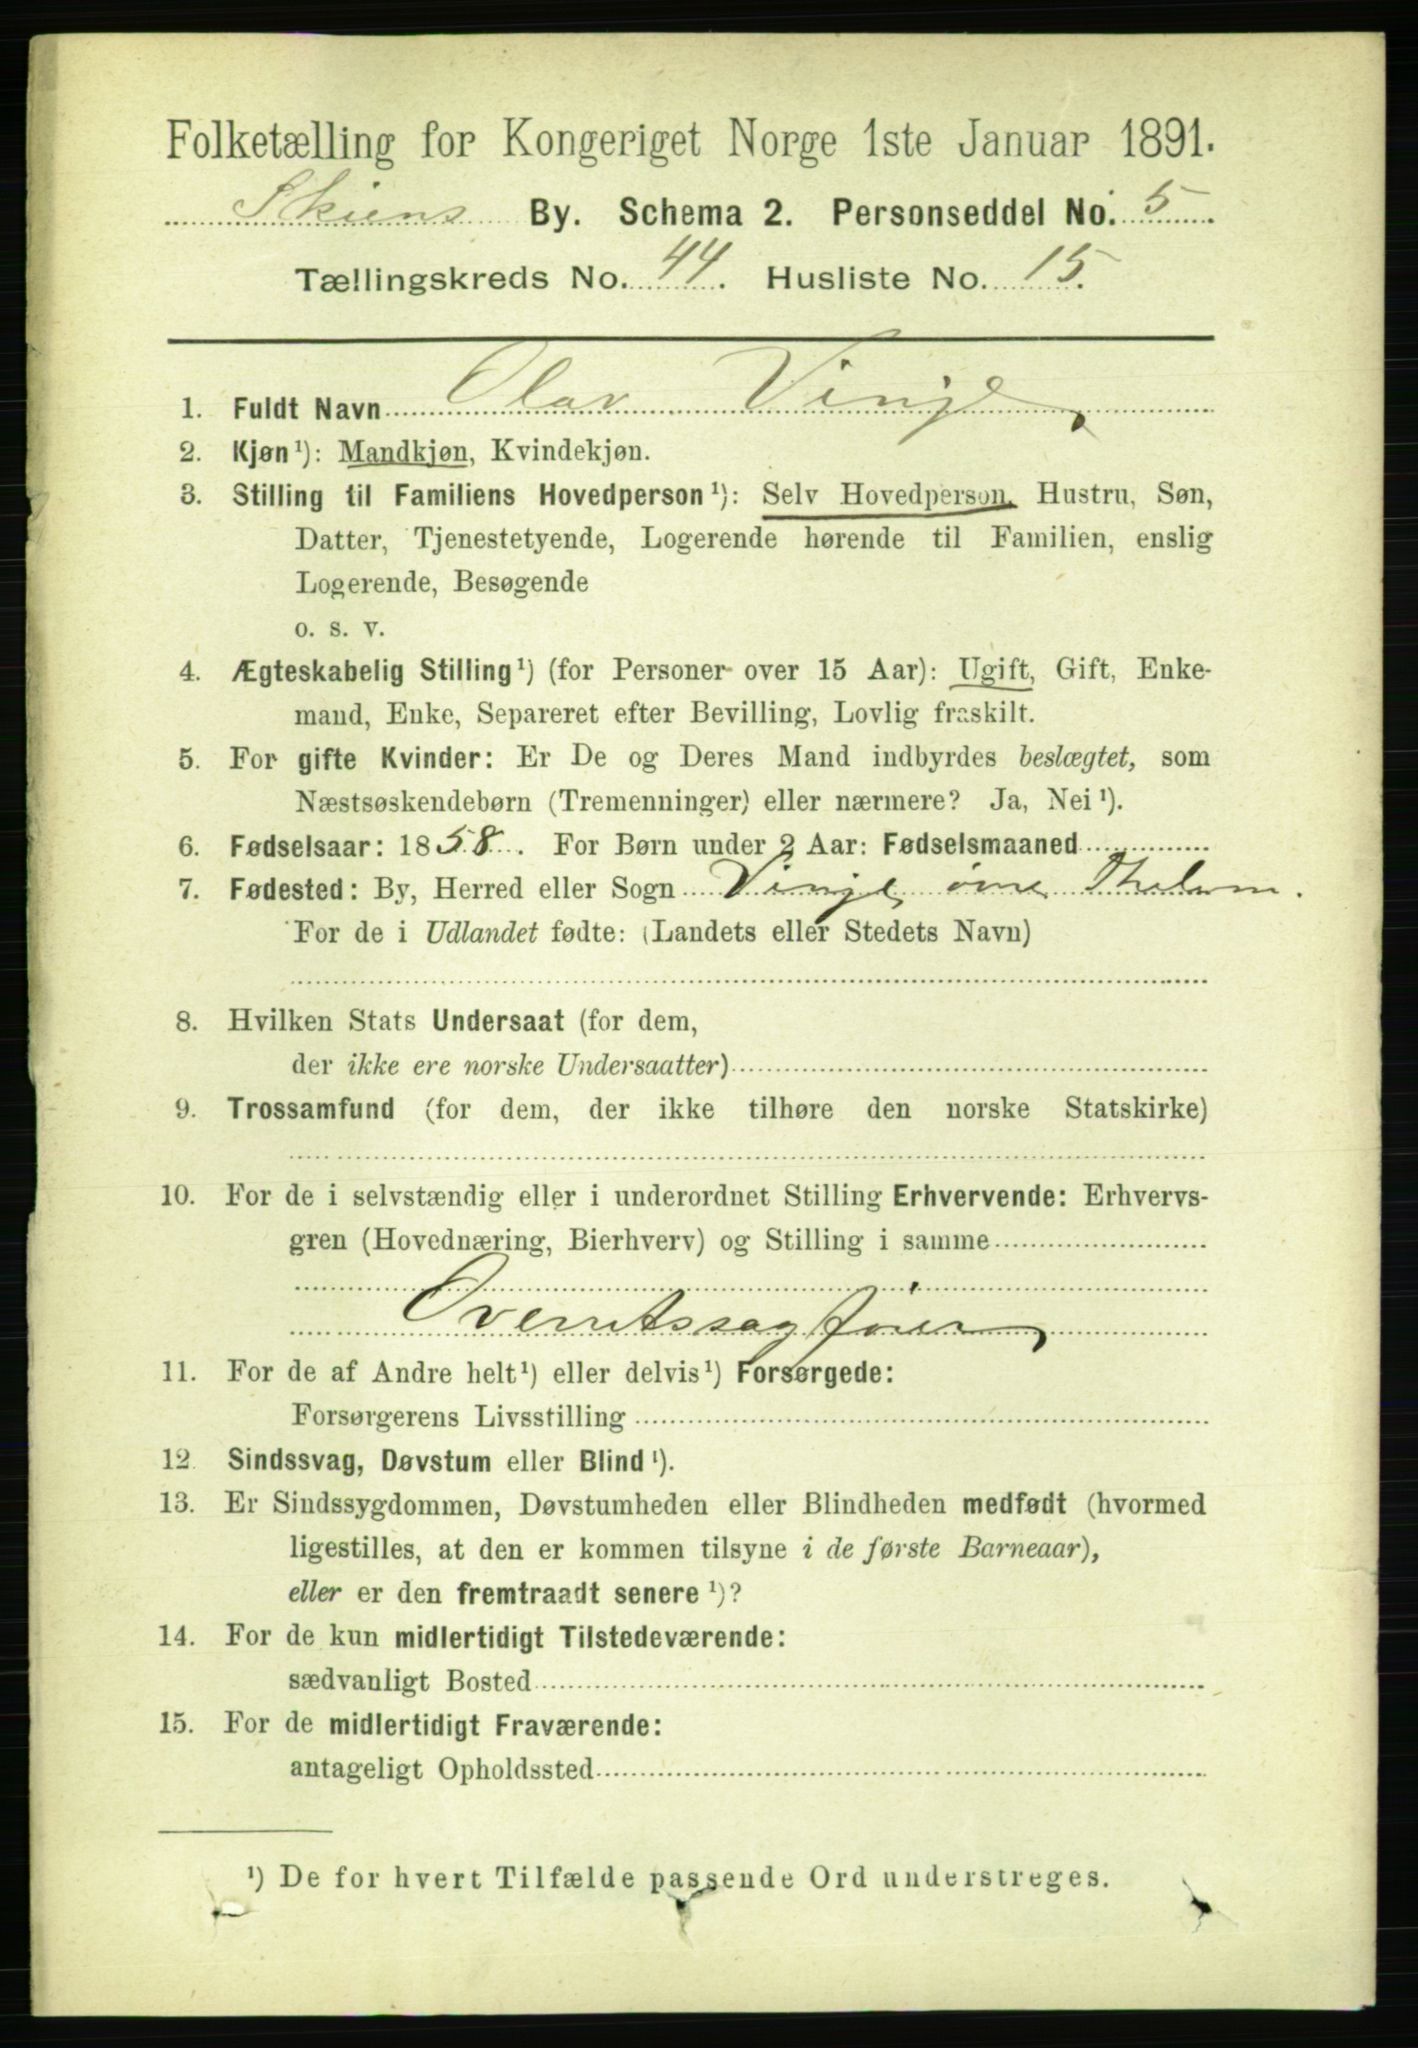 Folketælling for Kongeriget Norge 1ste Januar 1891.
Skiens By. Schema 2. Personseddel No. 5
Tællingskreds No. 44. Husliste No. 15.
1. Fuldt Navn Olav Vinje
2. Kjøn¹): Mandkjøn, Kvindekjøn.
3. Stilling til Familiens Hovedperson¹): Selv Hovedperson, Hustru, Søn,
Datter, Tjenestetyende, Logerende hørende til Familien, enslig
Logerende, Besøgende
o. s. v.
4. Ægteskabelig Stilling¹) (for Personer over 15 Aar): Ugift, Gift, Enke-
mand, Enke, Separeret efter Bevilling, Lovlig fraskilt.
5. For gifte Kvinder: Er De og Deres Mand indbyrdes beslægtet, som
Næstsøskendebørn (Tremenninger) eller nærmere? Ja, Nei¹).
6. Fødselsaar: 1858. For Børn under 2 Aar: Fødselsmaaned
7. Fødested: By, Herred eller Sogn Vinje øvre Thelem.
For de i Udlandet fødte: (Landets eller Stedets Navn)
8. Hvilken Stats Undersaat (for dem,
der ikke ere norske Undersaatter)
9. Trossamfund (for dem, der ikke tilhøre den norske Statskirke)
10. For de i selvstændig eller i underordnet Stilling Erhvervende: Erhvervs-
gren (Hovednæring, Bierhverv) og Stilling i samme
Overretssagfører
11. For de af Andre helt¹) eller delvis¹) Forsørgede:
Forsørgerens Livsstilling
12. Sindssvag, Døvstum eller Blind¹).
13. Er Sindssygdommen, Døvstumheden eller Blindheden medfødt (hvormed
ligestilles, at den er kommen tilsyne i de første Barneaar),
eller er den fremtraadt senere¹)?
14. For de kun midlertidigt Tilstedeværende:
sædvanligt Bosted
15. For de midlertidigt Fraværende:
antageligt Opholdssted
¹) De for hvert Tilfælde passende Ord understreges.